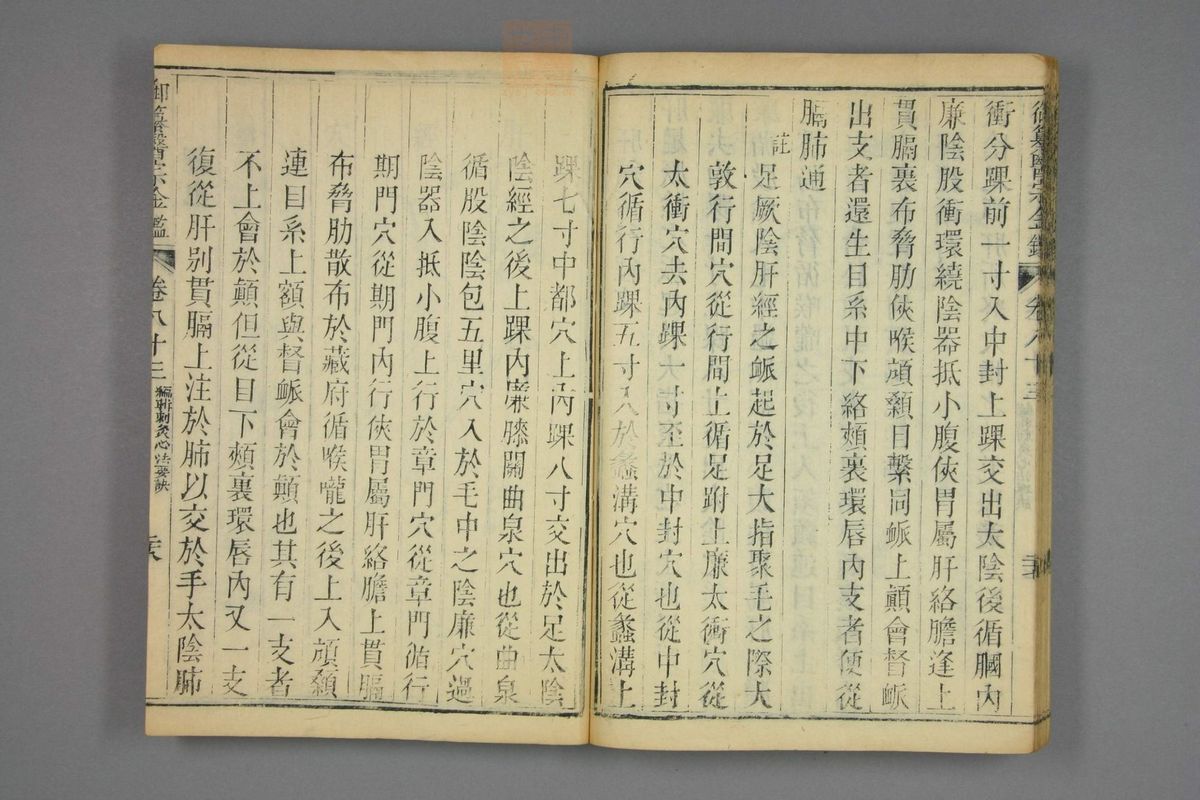 御纂醫宗金鑑 卷八十三
衝分踝前一寸入中封上踝交出太陰後循膕內
廉陰股衝環繞陰器抵小腹俠胃屬肝絡膽逢上
貫膈裏布脅肋俠喉頏顙目繫同䘑上顚會督䘑
出支者還生目系中下絡頰裏環唇內支者便從
膈肺通
註足厥陰肝經之䘑起於足大指聚毛之際大
敦行間穴從行間上循足跗上廉太衝穴從
太衝穴去內踝一寸至於中封穴也從中封
穴循行內踝五寸入於蠡溝穴也從蠡溝上
踝七寸中都穴上內踝八寸交出於足太陰
陰經之後上踝內廉膝關曲泉穴也從曲泉
循股陰陰包五里穴入於毛中之陰廉穴過
陰器入抵小腹上行於章門穴從章門循行
期門穴從期門內行俠胃屬肝絡膽上貫膈
布脅肋散布於藏府循喉嚨之後上入頏顙
連目系上額與督䘑會於顛也其有一支者
不上會於顛但從目下頰裏環唇內又一支
復從肝別貫膈上注於肺以交於手太陰肺
御纂醫宗金鑑 卷八十三 編輯刺灸心法要訣